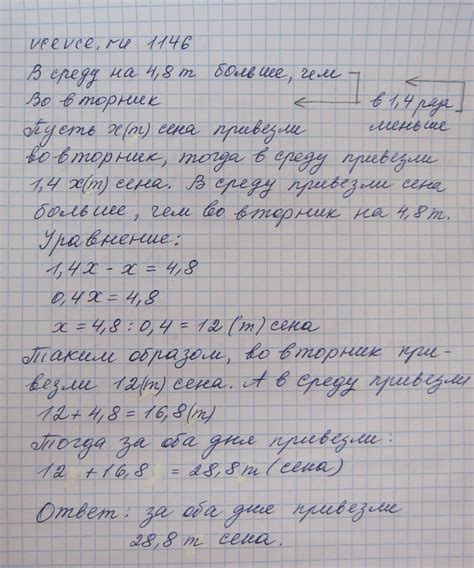 vcevce.ru 1146
В среду на 4,8 т больше, чем
Во вторник
в 1,4 раза
меньше
Пусть х(т) сена привезли
во вторник, тогда в среду привезли
1,4 х(т) сена. В среду привезли сена
больше, чем во вторник на 4,8 т.
Уравнение:
1,4х - х = 4,8
0,4х = 4,8
х = 4,8 : 0,4 = 12 (т) сена
Таким образом, во вторник при-
везли 12(т) сена. А в среду привезли
12 + 4,8 = 16,8(т)
Тогда за оба дня привезли:
12 + 16,8 = 28,8 т (сена)
Ответ: за оба дня привезли
28,8 т сена.